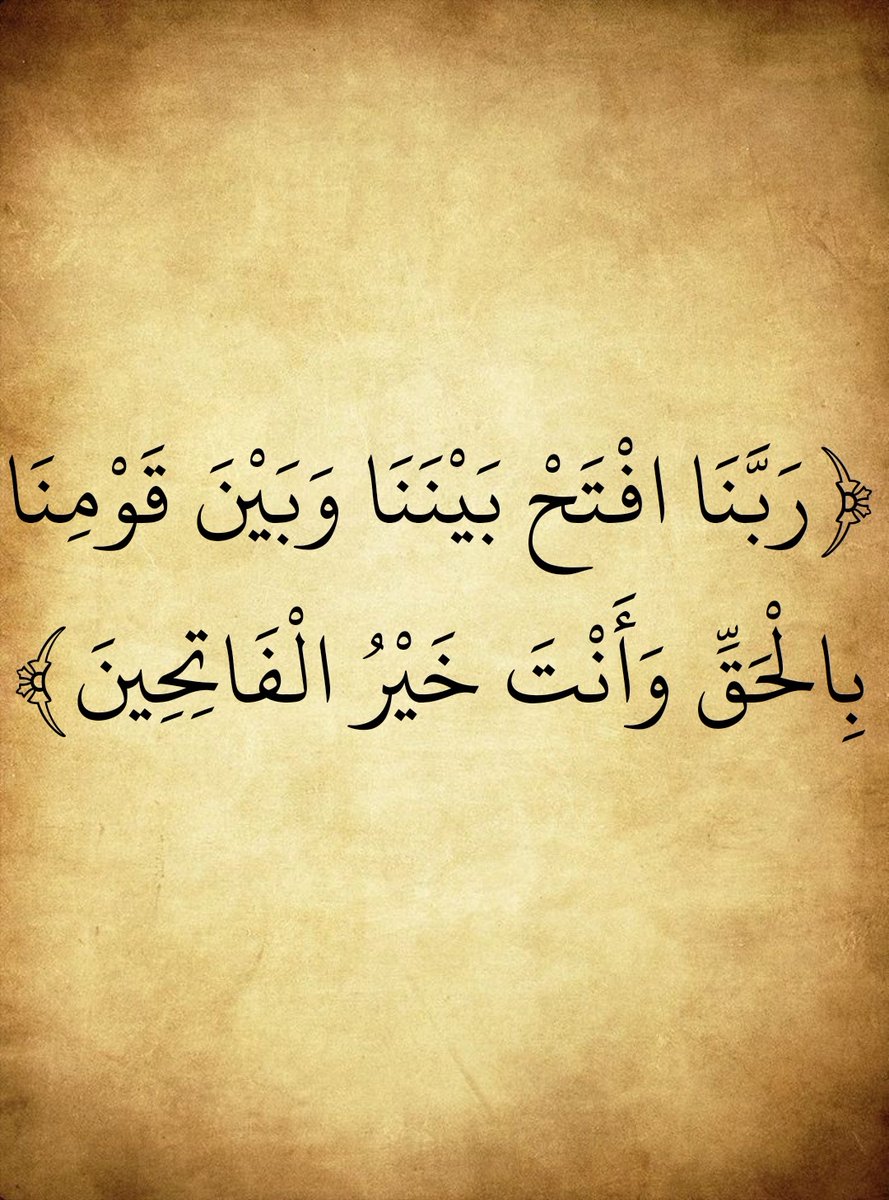 ﴿رَبَّنَا افْتَحْ بَيْنَنَا وَبَيْنَ قَوْمِنَا
بِالْحَقِّ وَأَنْتَ خَيْرُ الْفَاتِحِينَ﴾